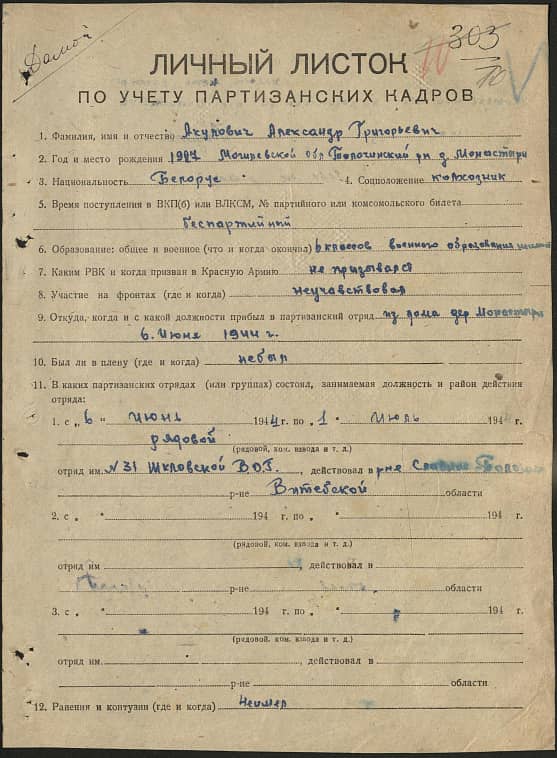 Домой
303
10
ЛИЧНЫЙ ЛИСТОК
ПО УЧЕТУ ПАРТИЗАНСКИХ КАДРОВ
1. Фамилия, имя и отчество Акулович Александр Григорьевич
2. Год и место рождения 1927 Могилевской обл Толочинский рн д. Монастыри
3. Национальность Белорус 4. Соцположение колхозник
5. Время поступления в ВКП(б) или ВЛКСМ, № партийного или комсомольского билета
беспартийный
6. Образование: общее и военное (что и когда окончил) 6 классов военного образования
7. Каким РВК и когда призван в Красную Армию не призывался
8. Участие на фронтах (где и когда) неучавствовал
9. Откуда, когда и с какой должности прибыл в партизанский отряд из дома дер Монастыри
6. Июня 1944 г.
10. Был ли в плену (где и когда) небыл
11. В каких партизанских отрядах (или группах) состоял, занимаемая должность и район действия
отряда:
1. с „ 6 " Июнь 1944 г. по „ 1 " Июль 194 г.
рядовой
(рядовой, ком. взвода и т. д.)
отряд им. N 31 Шкловской В.О.Г. , действовал в р-не
р-не Витебской области
2. с „ " 194 г. по „ " 194 г.
(рядовой, ком. взвода и т. д.)
отряд им , действовал в
р-не области
3. с „ " 194 г. по „ " 194 г.
(рядовой, ком. взвода и т. д.)
отряд им. , действовал в
р-не области
12. Ранения и контузии (где и когда) Неимел